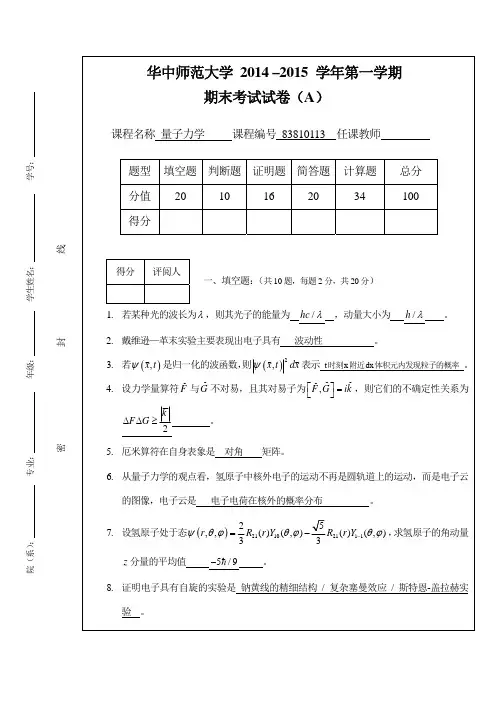 华中师范大学 2014 –2015 学年第一学期
期末考试试卷（A）
课程名称 量子力学 课程编号 83810113 任课教师
题型 填空题 判断题 证明题 简答题 计算题 总分
分值 20 10 16 20 34 100
得分
得分 评阅人
一、填空题:（共10题，每题2分，共20分）
1. 若某种光的波长为λ，则其光子的能量为 hc/λ ，动量大小为 h/λ 。
2. 戴维逊—革末实验主要表现出电子具有 波动性 。
3. 若ψ(x,t)是归一化的波函数,则|ψ(x,t)|²dx表示 t时刻x附近dx体积元内发现粒子的概率 。
4. 设力学量算符F̂与Ĝ不对易，且其对易子为[F̂,Ĝ]=ik̂，则它们的不确定性关系为
ΔFΔG≥k̄/2 。
5. 厄米算符在自身表象是 对角 矩阵。
6. 从量子力学的观点看，氢原子中核外电子的运动不再是圆轨道上的运动，而是电子云
的图像，电子云是 电子电荷在核外的概率分布 。
7. 设氢原子处于态ψ(r,θ,φ)=2/3R₂₁(r)Y₁₀(θ,φ)−√5/3R₂₁(r)Y₁₋₁(θ,φ)，求氢原子的角动量
z分量的平均值 −5ħ/9 。
8. 证明电子具有自旋的实验是 钠黄线的精细结构 / 复杂塞曼效应 / 斯特恩-盖拉赫实
验 。
院（系）： 专业： 年级： 学生姓名： 学号：
密 封 线